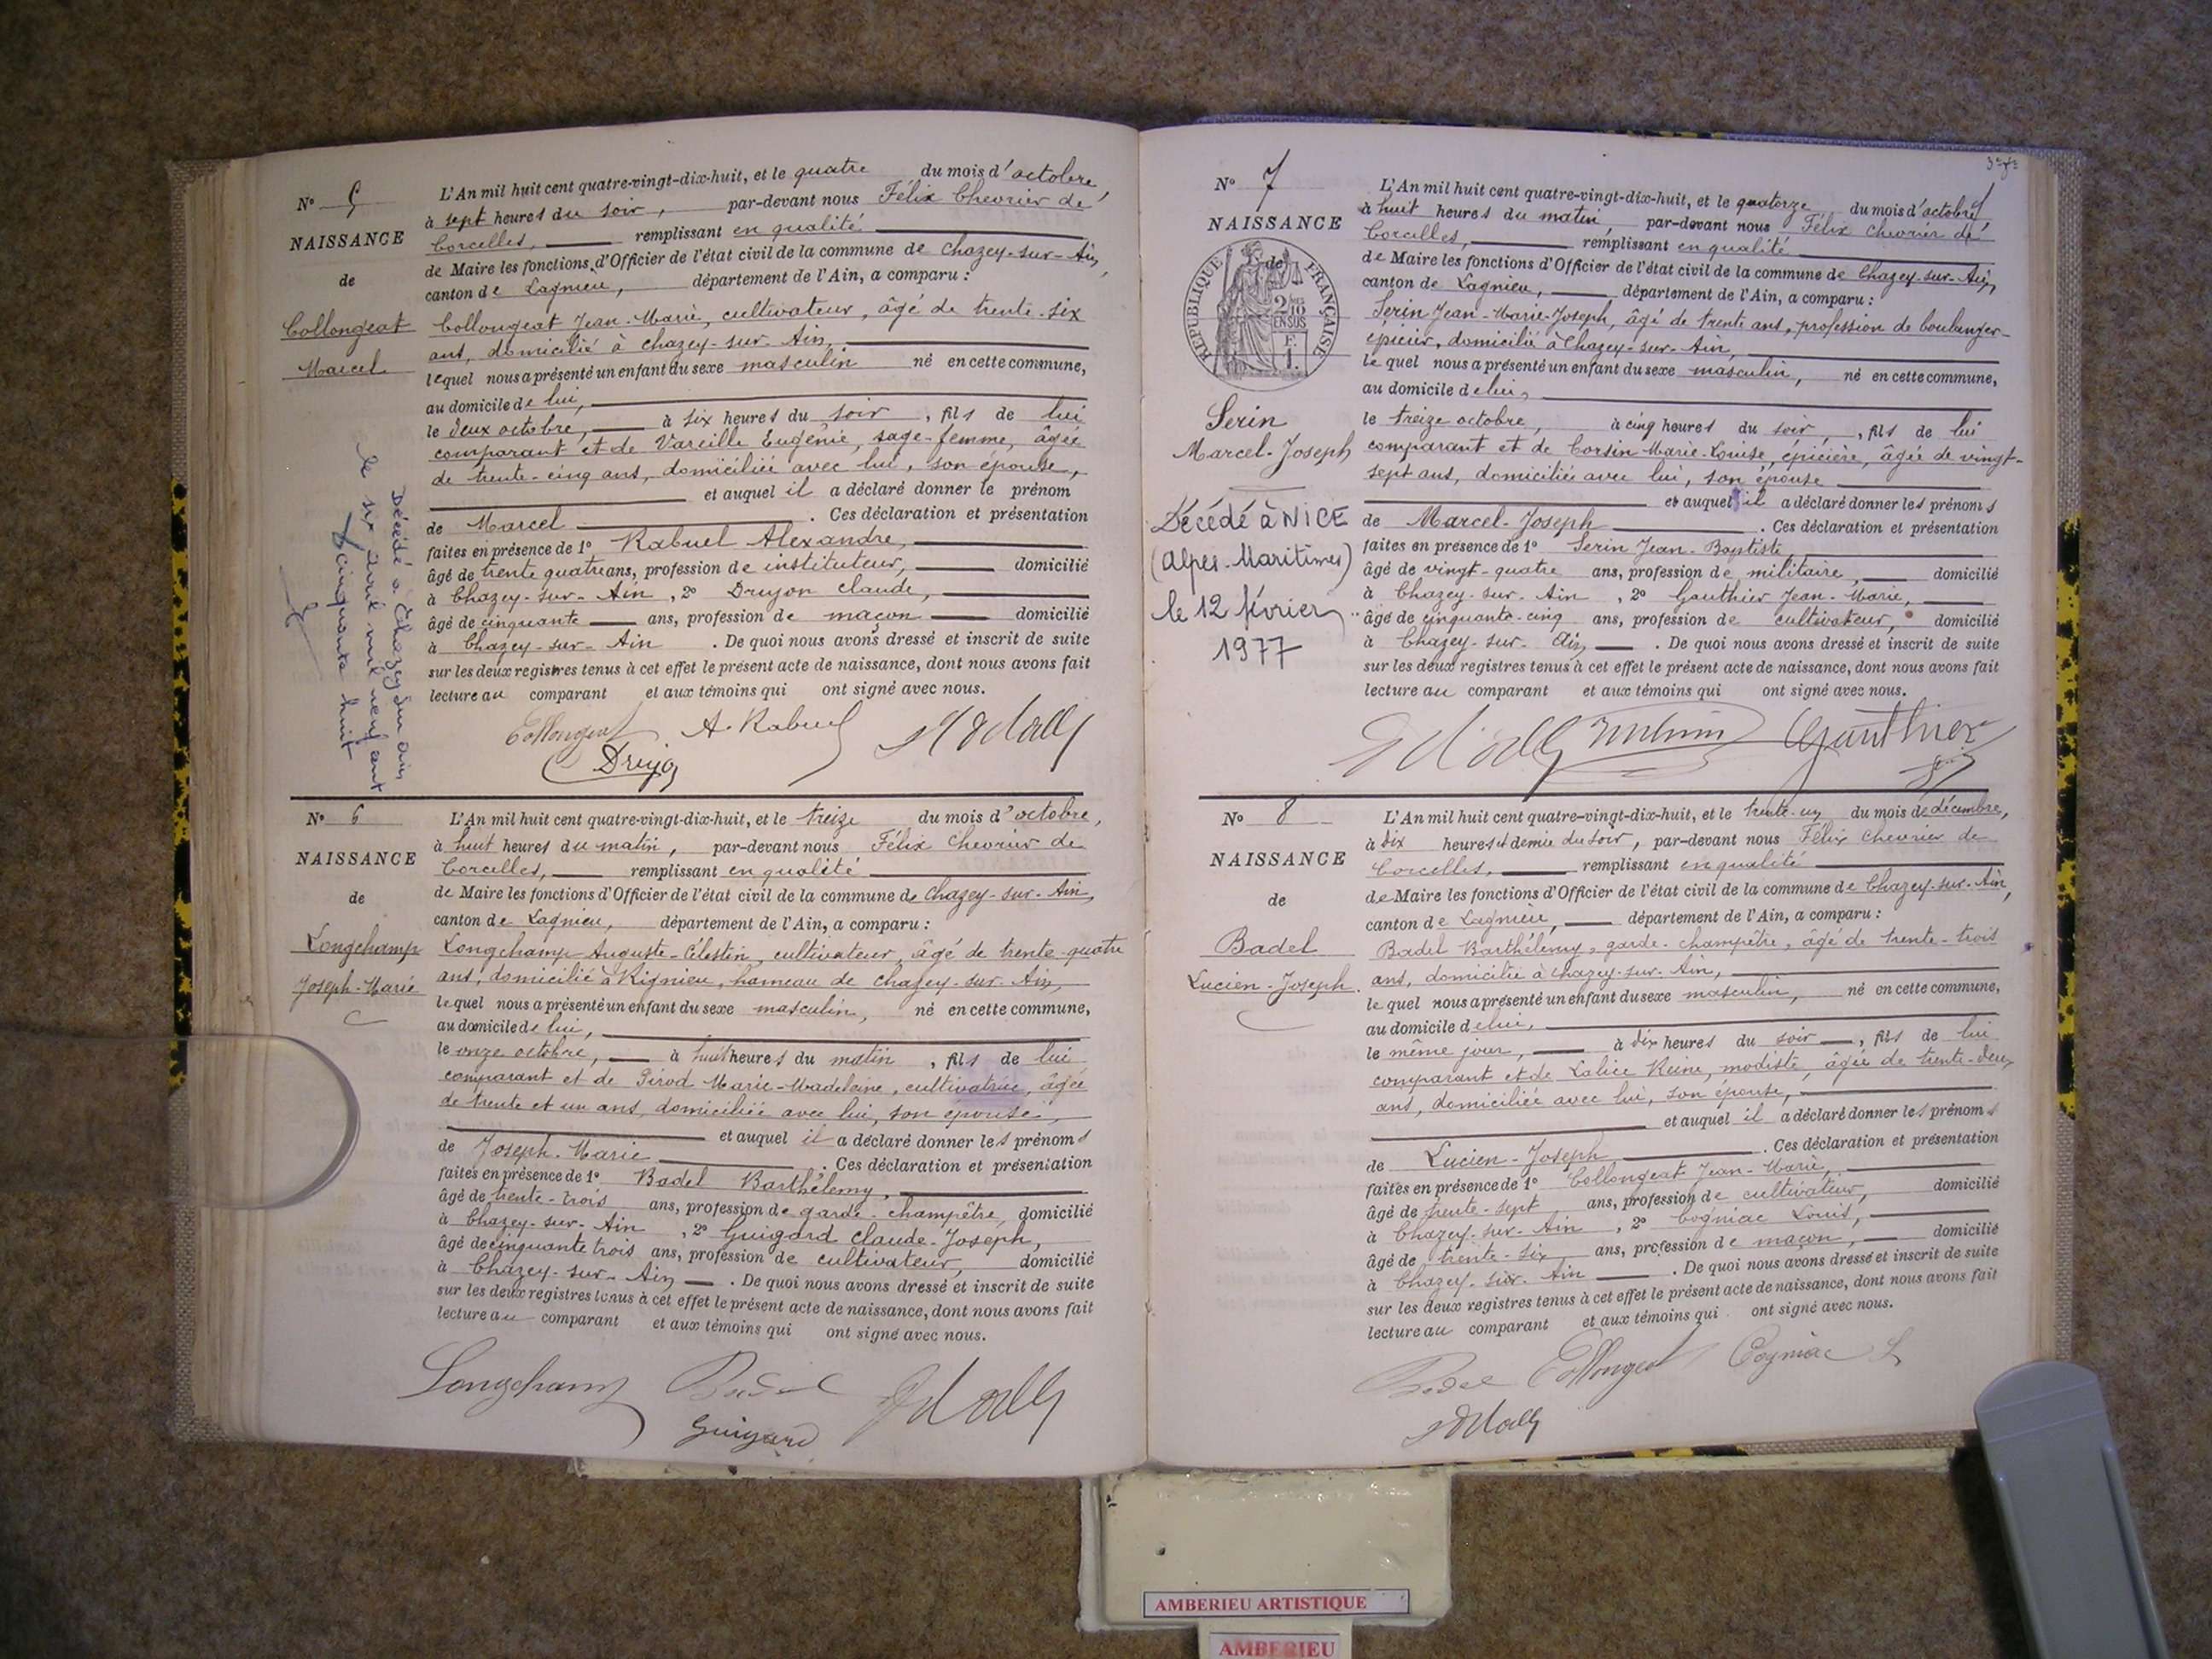 N° 5
NAISSANCE
de
Collongeat
Marcel
Décédé à Chazey sur ain
le six avril mil neuf cent
cinquante huit
L'An mil huit cent quatre-vingt-dix-huit, et le quatre du mois d'octobre,
à sept heures du soir, par-devant nous Félix Chevrier de
Corcelles, remplissant en qualité
de Maire les fonctions d'Officier de l'état civil de la commune de Chazey-sur-Ain,
canton de Lagnieu, département de l'Ain, a comparu :
Collongeat Jean-Marie, cultivateur, âgé de trente-six
ans, domicilié à Chazey-sur-Ain,
lequel nous a présenté un enfant du sexe masculin né en cette commune,
au domicile de lui,
le deux octobre, à six heures du soir, fils de lui
comparant et de Vareille Eugénie, sage-femme, âgée
de trente-cinq ans, domiciliée avec lui, son épouse,
et auquel il a déclaré donner le prénom
de Marcel. Ces déclaration et présentation
faites en présence de 1° Rabuel Alexandre,
âgé de trente quatre ans, profession de instituteur, domicilié
à Chazey-sur-Ain, 2° Drujon Claude,
âgé de cinquante ans, profession de maçon domicilié
à Chazey-sur-Ain. De quoi nous avons dressé et inscrit de suite
sur les deux registres tenus à cet effet le présent acte de naissance, dont nous avons fait
lecture au comparant et aux témoins qui ont signé avec nous.
Collongeat A. Rabuel
Drujon
N° 6
NAISSANCE
de
Longchamp
Joseph-Marie
L'An mil huit cent quatre-vingt-dix-huit, et le treize du mois d'octobre,
à huit heures du matin, par-devant nous Félix Chevrier de
Corcelles, remplissant en qualité
de Maire les fonctions d'Officier de l'état civil de la commune de Chazey-sur-Ain,
canton de Lagnieu, département de l'Ain, a comparu :
Longchamp Auguste-Célestin, cultivateur, âgé de trente-quatre
ans, domicilié à Rignieu, hameau de Chazey-sur-Ain,
lequel nous a présenté un enfant du sexe masculin, né en cette commune,
au domicile de lui,
le onze octobre, à huit heures du matin, fils de lui
comparant et de Girod Marie-Madeleine, cultivatrice, âgée
de trente et un ans, domiciliée avec lui, son épouse,
et auquel il a déclaré donner les prénoms
de Joseph-Marie. Ces déclaration et présentation
faites en présence de 1° Badel Barthélemy,
âgé de trente-trois ans, profession de garde-champêtre, domicilié
à Chazey-sur-Ain, 2° Guigard Claude-Joseph,
âgé de cinquante trois ans, profession de cultivateur, domicilié
à Chazey-sur-Ain. De quoi nous avons dressé et inscrit de suite
sur les deux registres tenus à cet effet le présent acte de naissance, dont nous avons fait
lecture au comparant et aux témoins qui ont signé avec nous.
Longchamp Badel
Guigard
N° 7
NAISSANCE
de
RÉPUBLIQUE FRANÇAISE
2/10 EN SUS
F. 1.
Serin
Marcel-Joseph
Décédé à NICE
(Alpes-Maritimes)
le 12 février
1977
L'An mil huit cent quatre-vingt-dix-huit, et le quatorze du mois d'octobre
à huit heures du matin, par-devant nous Félix Chevrier de
Corcelles, remplissant en qualité
de Maire les fonctions d'Officier de l'état civil de la commune de Chazey-sur-Ain,
canton de Lagnieu, département de l'Ain, a comparu :
Serin Jean-Marie-Joseph, âgé de trente ans, profession de boulanger-
épicier, domicilié à Chazey-sur-Ain,
lequel nous a présenté un enfant du sexe masculin, né en cette commune,
au domicile de lui,
le treize octobre, à cinq heures du soir, fils de lui
comparant et de Corsin Marie-Louise, épicière, âgée de vingt-
sept ans, domiciliée avec lui, son épouse
et auquel il a déclaré donner les prénoms
de Marcel-Joseph. Ces déclaration et présentation
faites en présence de 1° Serin Jean-Baptiste
âgé de vingt-quatre ans, profession de militaire, domicilié
à Chazey-sur-Ain, 2° Gauthier Jean-Marie,
âgé de cinquante-cinq ans, profession de cultivateur, domicilié
à Chazey-sur-Ain. De quoi nous avons dressé et inscrit de suite
sur les deux registres tenus à cet effet le présent acte de naissance, dont nous avons fait
lecture au comparant et aux témoins qui ont signé avec nous.
Gauthier
N° 8
NAISSANCE
de
Badel
Lucien-Joseph.
L'An mil huit cent quatre-vingt-dix-huit, et le trente-un du mois de décembre,
à dix heures et demie du soir, par-devant nous Félix Chevrier de
Corcelles, remplissant en qualité
de Maire les fonctions d'Officier de l'état civil de la commune de Chazey-sur-Ain,
canton de Lagnieu, département de l'Ain, a comparu :
Badel Barthélemy, garde-champêtre, âgé de trente-trois
ans, domicilié à Chazey-sur-Ain,
lequel nous a présenté un enfant du sexe masculin, né en cette commune,
au domicile de lui,
le même jour, à dix heures du soir, fils de lui
comparant et de Reine, modiste, âgée de trente-deux
ans, domiciliée avec lui, son épouse,
et auquel il a déclaré donner les prénoms
de Lucien-Joseph. Ces déclaration et présentation
faites en présence de 1° Collongeat Jean-Marie,
âgé de trente-sept ans, profession de cultivateur, domicilié
à Chazey-sur-Ain, 2° Cogniac Louis,
âgé de trente-six ans, profession de maçon, domicilié
à Chazey-sur-Ain. De quoi nous avons dressé et inscrit de suite
sur les deux registres tenus à cet effet le présent acte de naissance, dont nous avons fait
lecture au comparant et aux témoins qui ont signé avec nous.
Badel Collongeat Cogniac L
AMBERIEU ARTISTIQUE
AMBERIEU